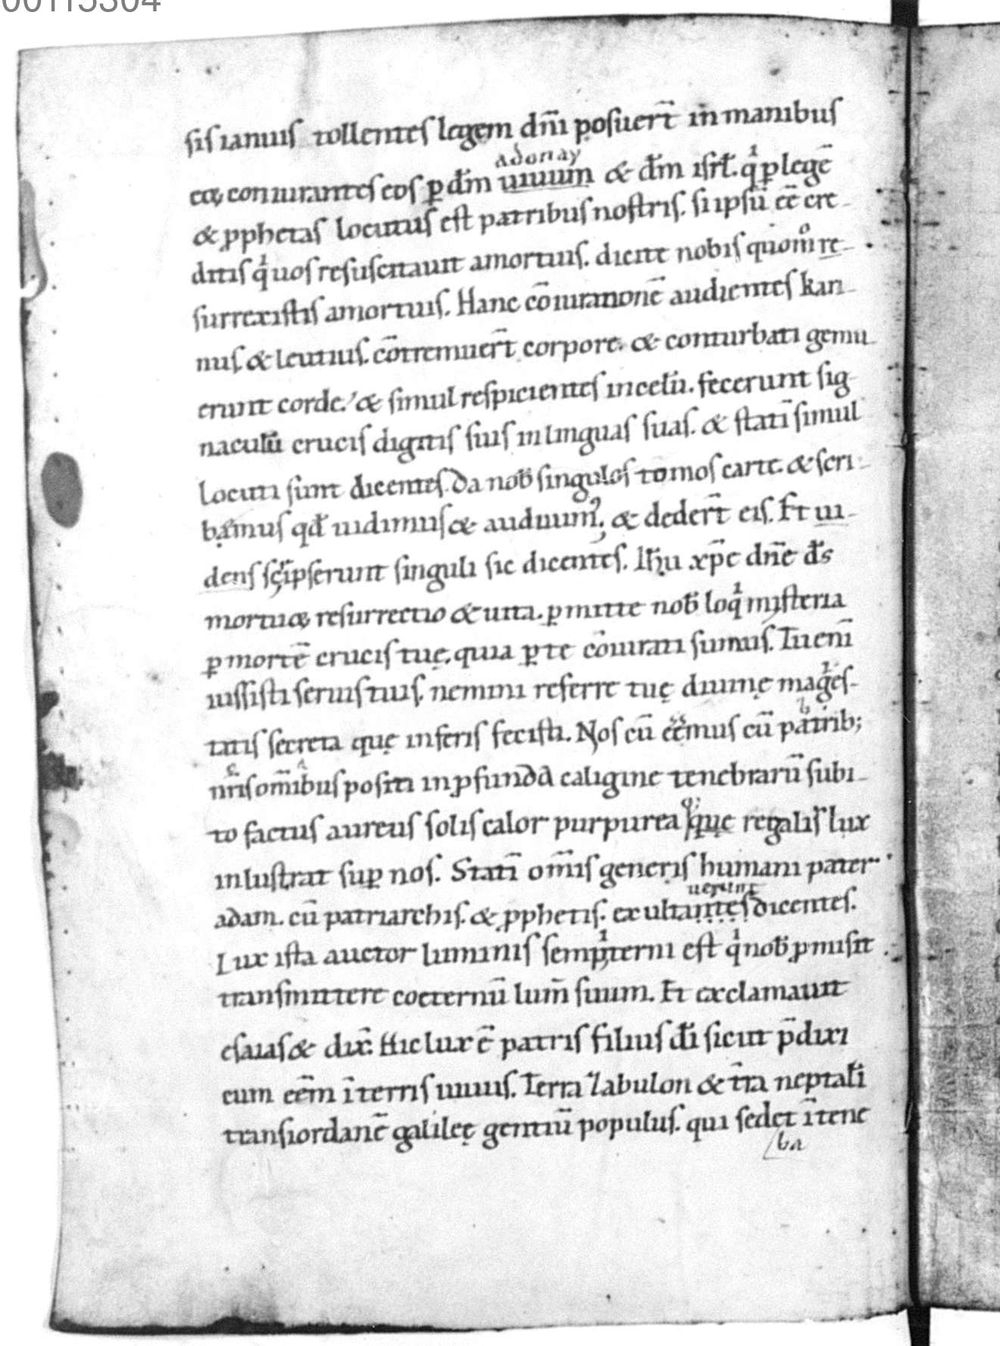 00115304
sis ianuis tollentes legem dñi posuer̄t in manibus
adonay
eoꝝ coniurantes eos ꝑ dm̄ uiuum & dm̄ isrl̄. qͥ ꝑ legē
& ꝓphetas locutus est patribus nostris. si ipsū eē cre
ditis qͥ uos resuscitauit a mortuis. dicite nobis quom̊ re
surrexistis a mortuis. Hanc cōiurationē audientes kari
nus & leutius. cōtremuer̄t corpore. & conturbati gemu
erunt corde. & simul respicientes in celū. fecerunt sig
naculū crucis digitis suis in linguas suas. & statī simul
locuti sunt dicentes. Da nob̄ singulos tomos carte. & scri
bamus qđ uidimus & audiuim᷒. & deder̄t eis. Et ui
dens sc̄ipserunt singuli sic dicentes. Ihū xp̄e dn̄e d̄s
mortuoꝝ resurrectio & uita. ꝑmitte nob̄ loqͥ mysteria
ꝑ mortē crucis tuę. quia ꝑ te cōiurati sumus. Tu enī
iussisti seruis tuis. nemini referre tuę diuinę mages
tatis secreta quę in feris fecisti. Nos cū eēmus cū patrib;
nr̄is om̄ibus positi in ꝓfunda caligine tenebrarū subi
to factus aureus solis calor purpurea q; que regalis lux
inlustrat suꝑ nos. Statī om̄is generis humani pater
uerunt
adam. cū patriarchis. & ꝓphetis. exultantes dicentes.
Lux ista auctor luminis sempͥterni est qͥ nob̄ ꝓmisit
transmittere coeternū lum̄ suum. Et exclamauit
esaias & dix̄. Hic lux ē patris filius dī sicut p̄dixi
cum eēm ī terris uiuus. Terra zabulon & tr̄a neptalī
trans iordanē galileę gentiū populus. qui sedet ī tene
bra